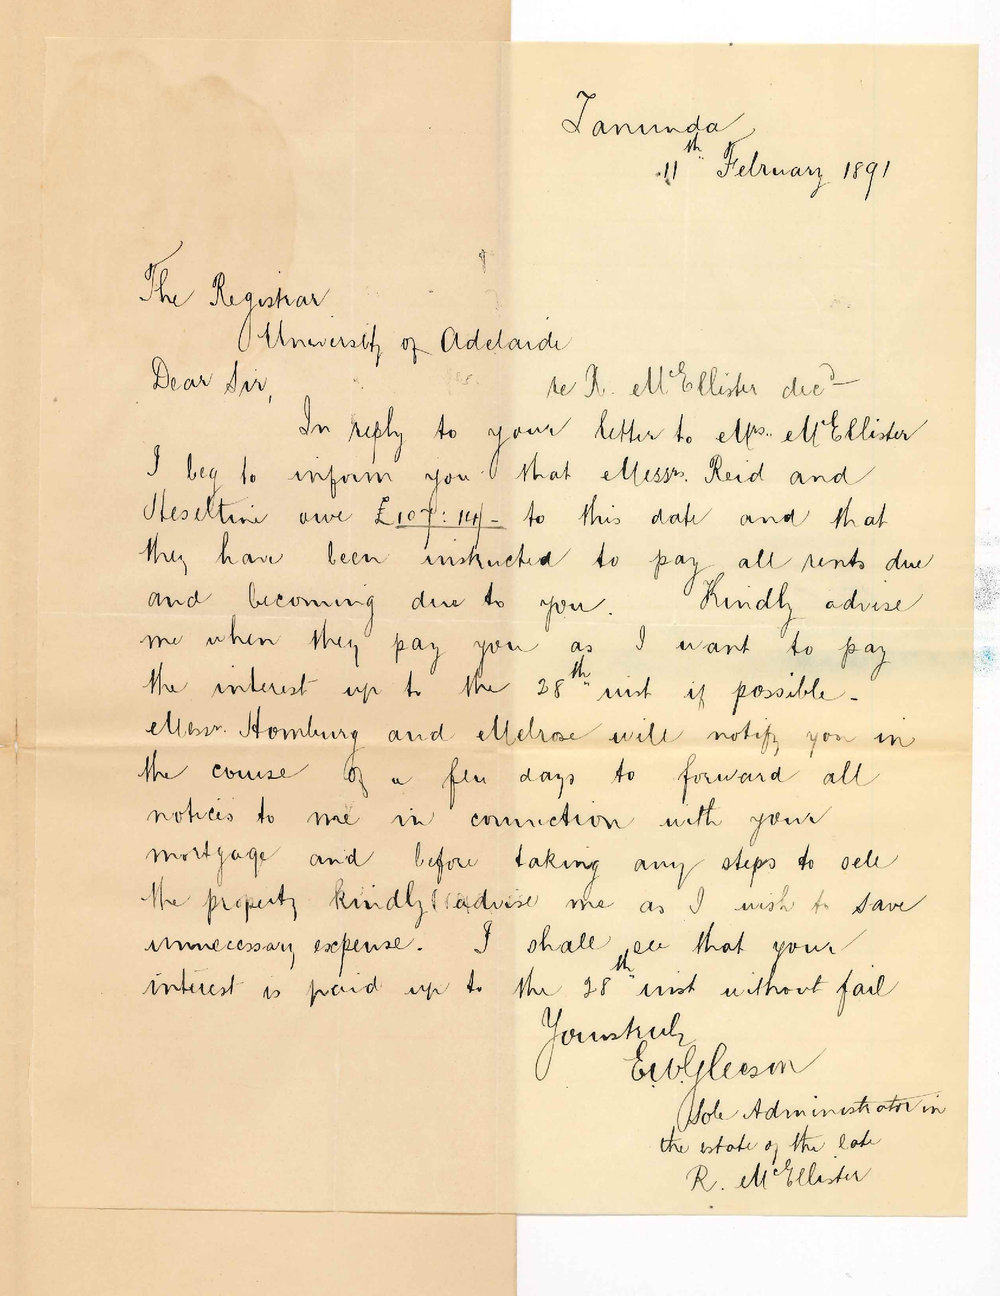 Tanunda
11th February 1891
The Registrar
University of Adelaide
Dear Sir,
re R. McEllister decd
In reply to your letter to Mrs. McEllister
I beg to inform you that Messrs. Reid and
Heseltine owe £107:14/- to this date and that
they have been instructed to pay all rents due
and becoming due to you. Kindly advise
me when they pay you as I want to pay
the interest up to the 28th inst if possible -
Messrs. Homburg and Melrose will notify you in
the course of a few days to forward all
notices to me in connection with your
mortgage and before taking any steps to sell
the property kindly advise me as I wish to save
unnecessary expense. I shall see that your
interest is paid up to the 28th inst without fail
Yours truly
E.W. Gleeson
Sole Administrator in
the estate of the late
R. McEllister